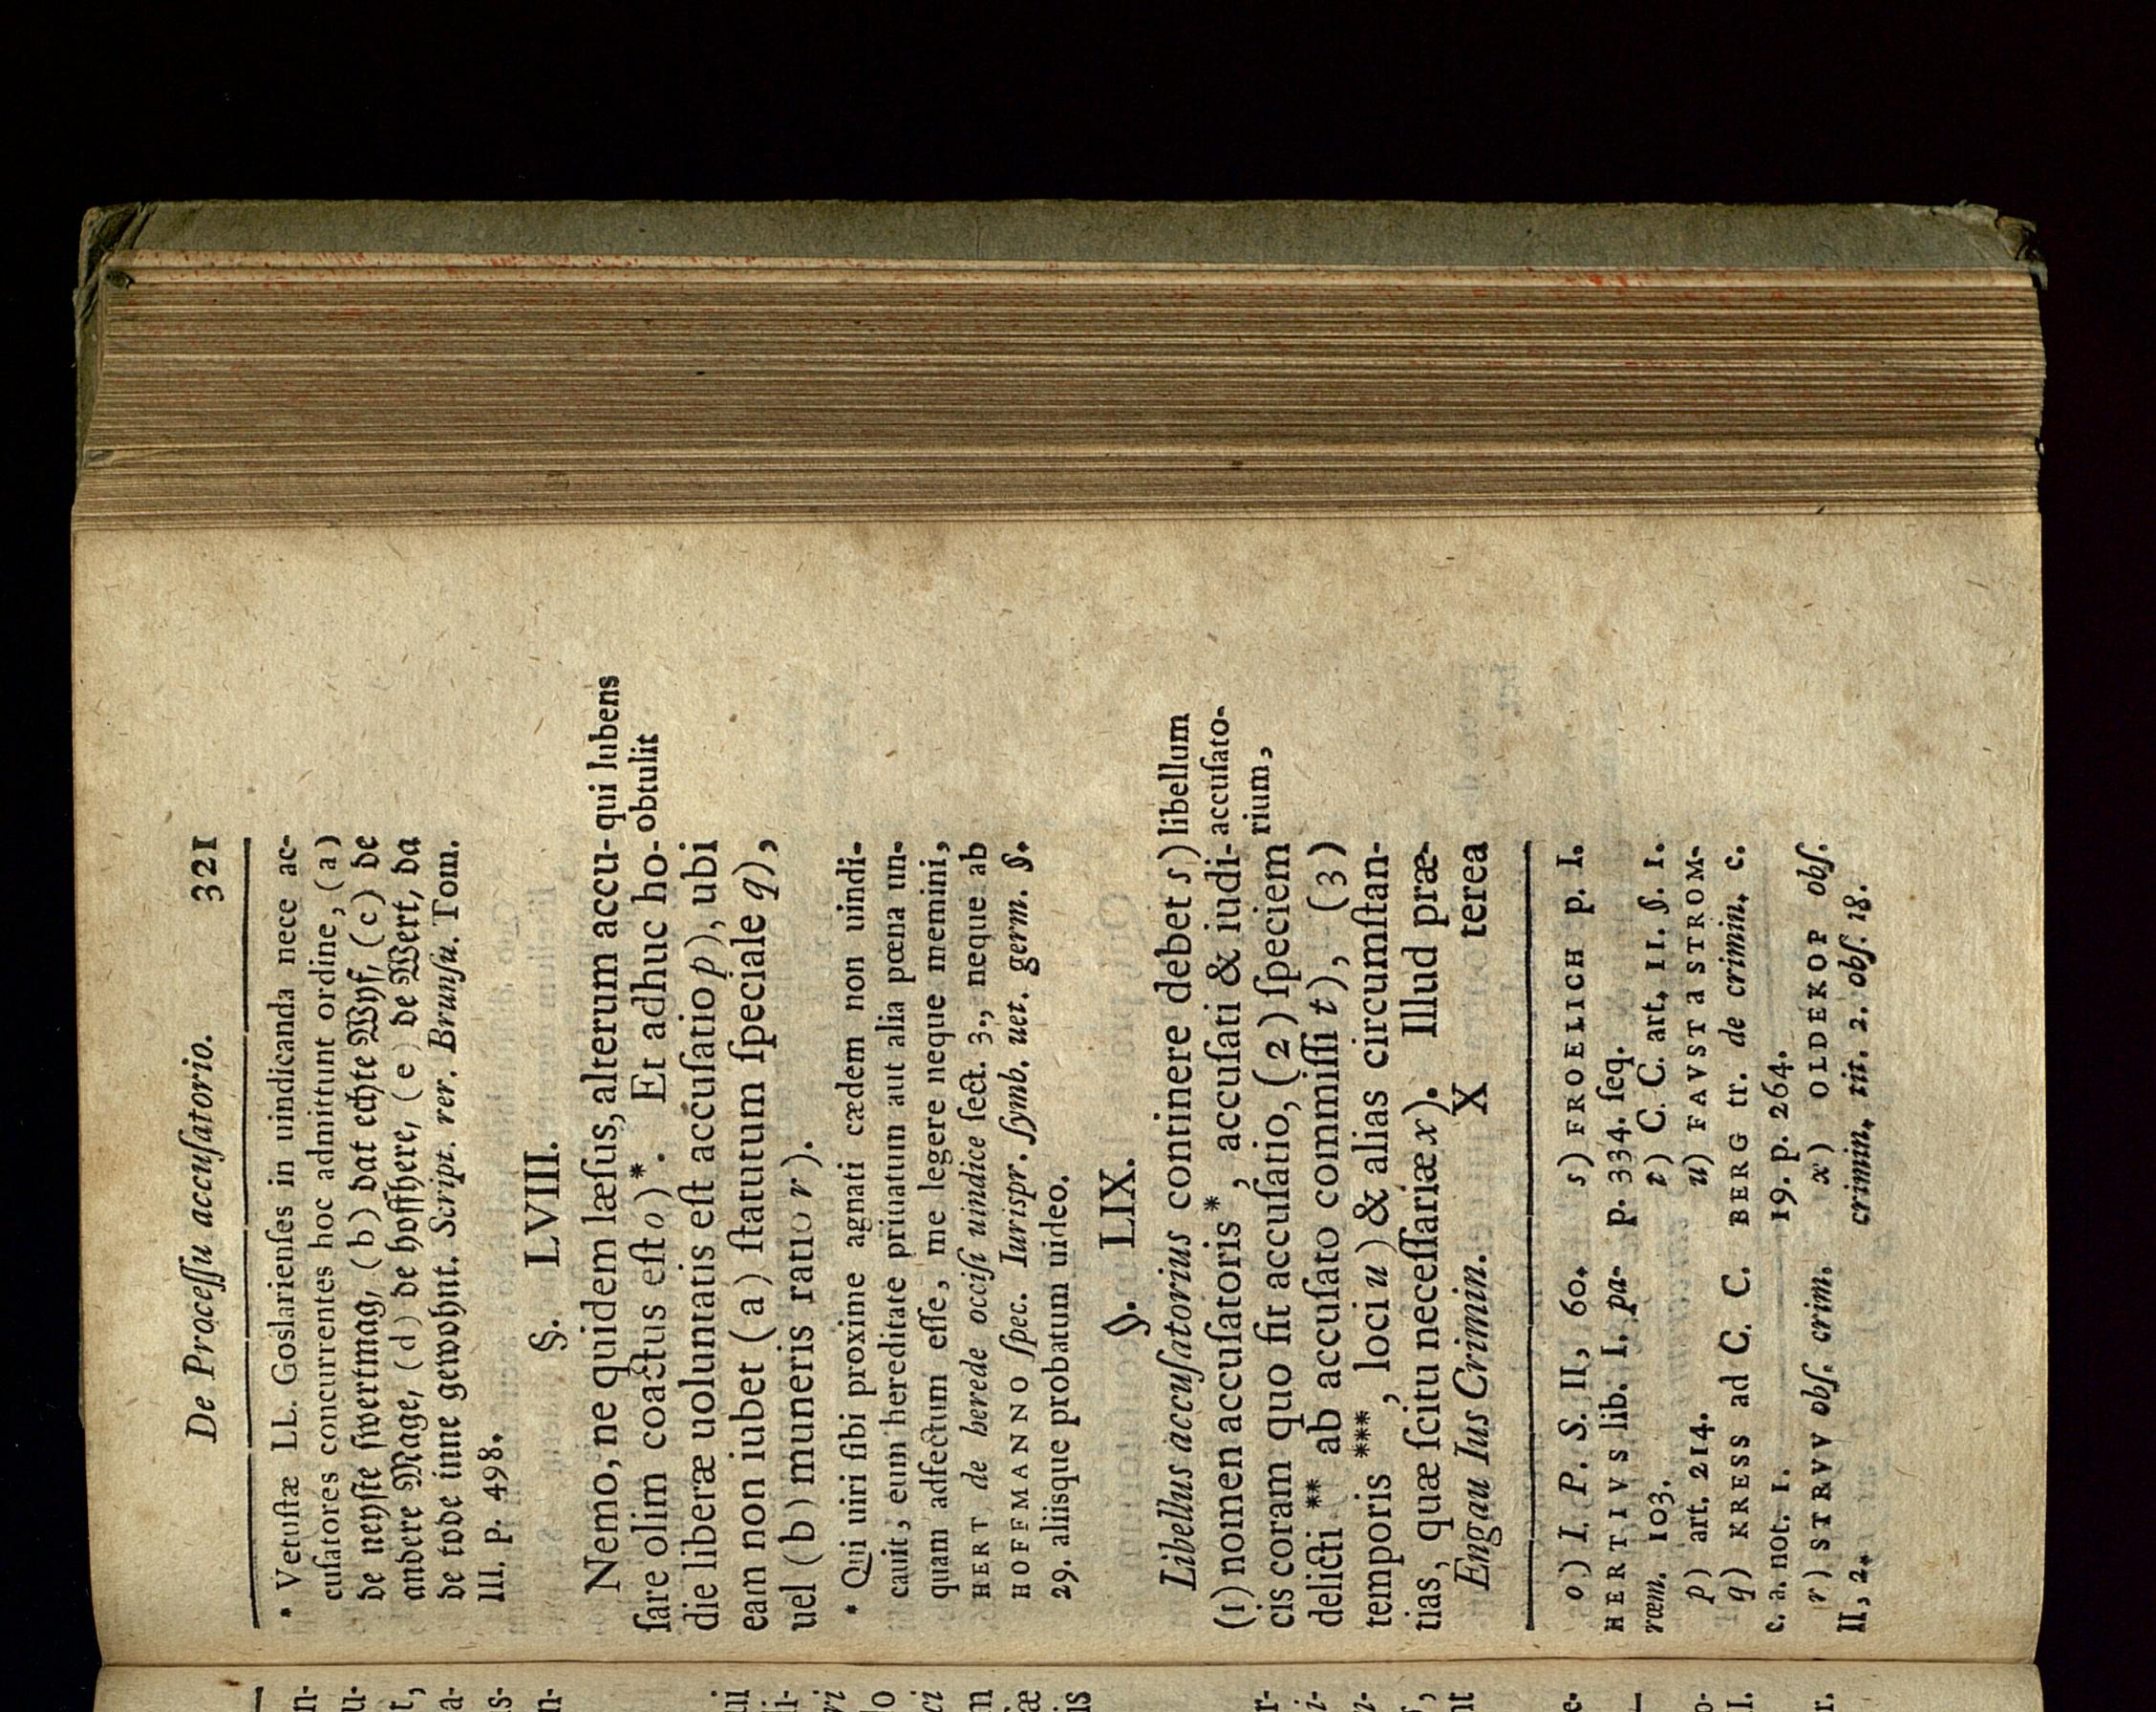 De Processu accusatorio. 321
* Vetustæ LL. Goslarienses in uindicanda nece ac-
cusatores concurrentes hoc admittunt ordine, (a)
de neyste swertmag, (b) dat echte Wyf, (c) de
andere Mage, (d) de hoffhere, (e) de Wert, da
de tode inne gewohnt. Script. rer. Brunsu. Tom.
III. p. 498.
§. LVIII.
Nemo, ne quidem læsus, alterum accu-
sare olim coactus est o) *. Et adhuc ho-
die liberæ uoluntatis est accusatio p), ubi
eam non iubet (a) statutum speciale q),
uel (b) muneris ratio r).
qui lubens
obtulit
* Qui uiri sibi proxime agnati cædem non uindi-
cauit, eum hereditate priuatum aut alia pœna un-
quam adfectum esse, me legere neque memini,
HERT de herede occisi uindice sect. 3., neque ab
HOFFMANNO spec. Iurispr. symb. uet. germ. §.
29. aliisque probatum uideo.
§. LIX.
Libellus accusatorius continere debet s)
(1) nomen accusatoris *, accusati & iudi-
cis coram quo fit accusatio, (2) speciem
delicti ** ab accusato commissi t), (3)
temporis ***, loci u) & alias circumstan-
tias, quæ scitu necessariæ x). Illud præ-
libellum
accusato-
rium,
Engau Ius Crimin. X terea
o) I. P. S. II, 60.
HERTIVS lib. I. pa-
rœm. 103.
p) art. 214.
q) KRESS ad C. C. C.
c. a. not. 1.
r) STRVV obs. crim.
II, 2.
s) FROELICH p. I.
p. 334. seq.
t) C. C. art. 11. §. 1.
u) FAVST a STROM-
BERG tr. de crimin. c.
19. p. 264.
x) OLDEKOP obs.
crimin. tit. 2. obs. 18.